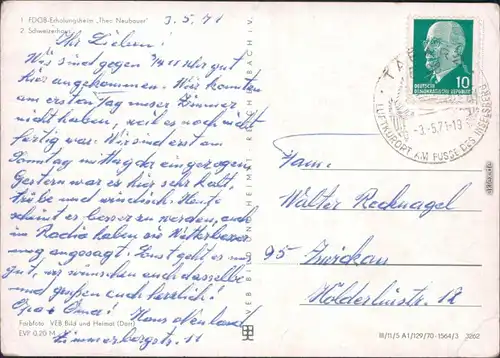 1 FDGB-Erholungsheim „Theo Neubauer"
2 Schweizerhaus
3.5.71
Ihr Lieben!
Wir sind gegen 1/4 11 Uhr gut
hier angekommen. Wir konnten
am ersten Tag unser Zimmer
nicht haben, weil es noch nicht
fertig war. Wir sind erst am
Sonntag mittag da eingezogen.
Gestern war es hier sehr kalt,
trübe und windisch. Heute
scheint es besser zu werden, auch
im Radio haben sie Wetterbesser
ung angesagt. Sonst geht es uns
gut, wir wünschen euch dasselbe
und grüßen euch herzlich!
Opa + Oma!
Haus
Zimmerbergstr. 11
Farbfoto VEB Bild und Heimat (Dörr)
EVP 0.20 M
VEB BILD UND HEIMAT REICHENBACH I. V.
DEUTSCHE
DEMOKRATISCHE REPUBLIK
10
-3.-5.71-13
LUFTKURORT AM FUSSE DES INSELSBERGES
Fam.
Walter Recknagel
95 Zwickau
Hölderlinstr. 12
III/11/5 A1/129/70-1564/3 3262